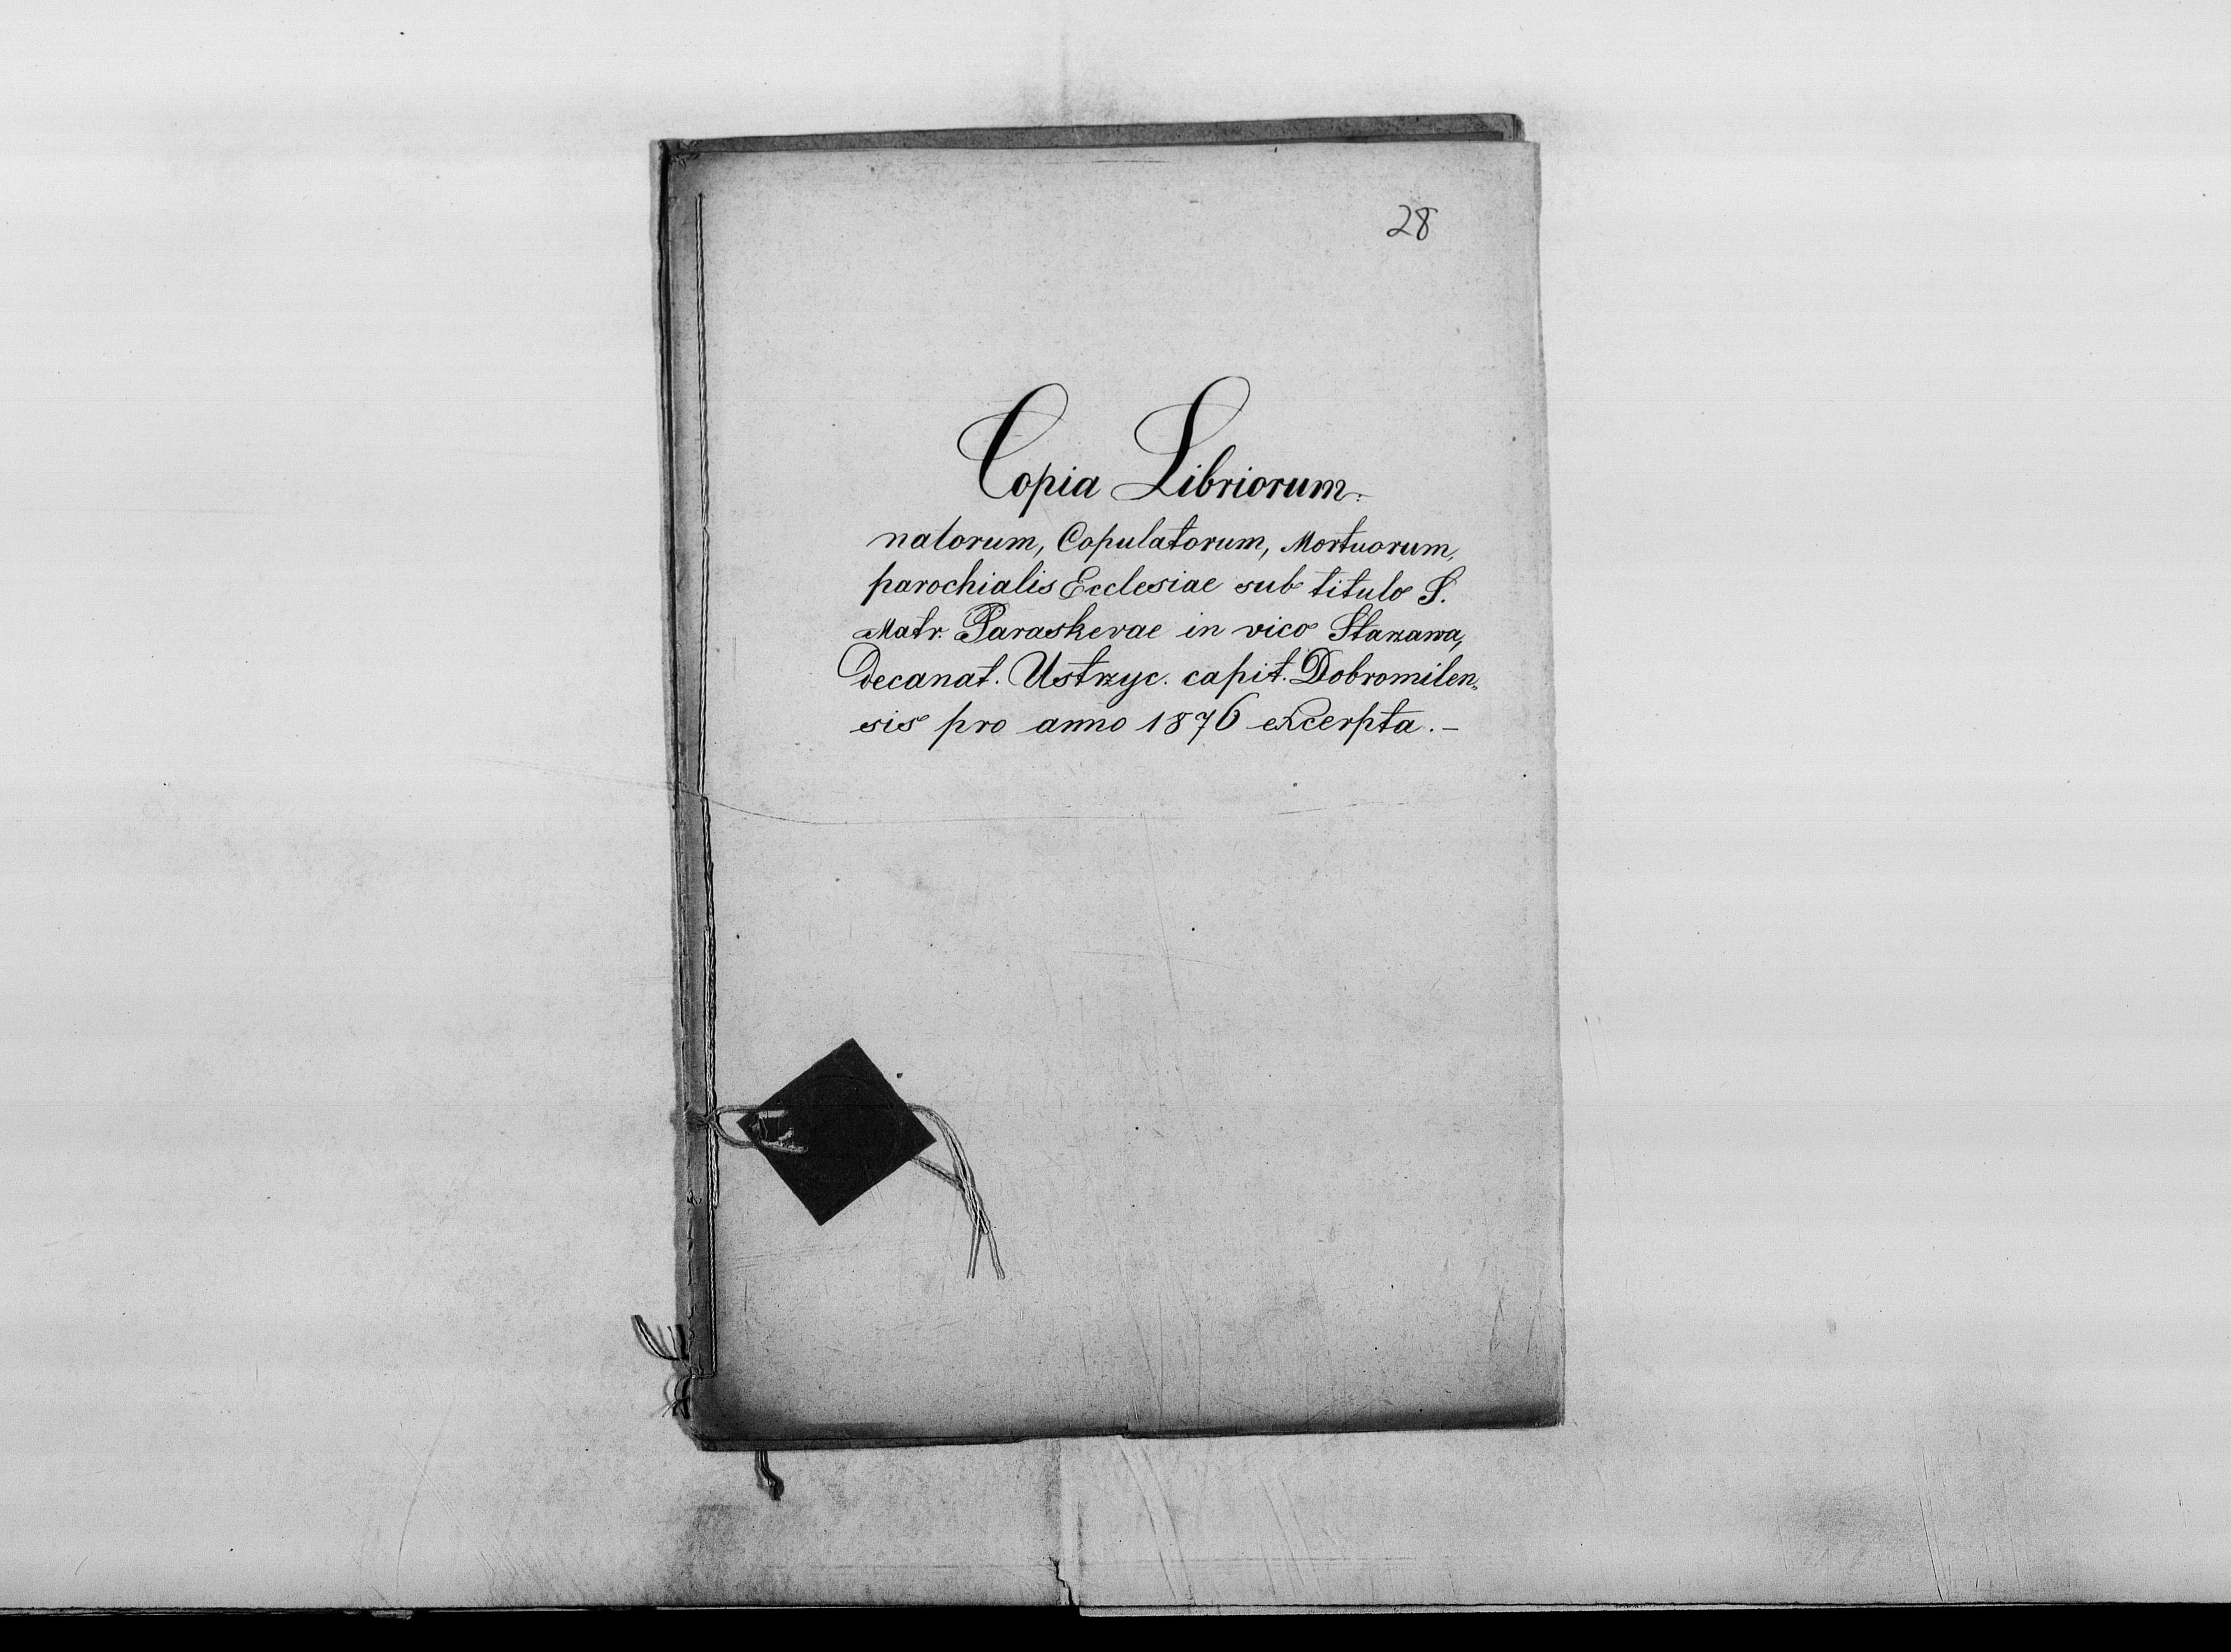 28
Copia Libriorum.
natorum, Copulatorum, Mortuorum,
parochialis Ecclesiae sub titulo S.
Matr. Paraskevae in vico Starzawa,
Decanat. Ustrzyc. capit. Dobromilen„
sis pro anno 1876 excerpta.–